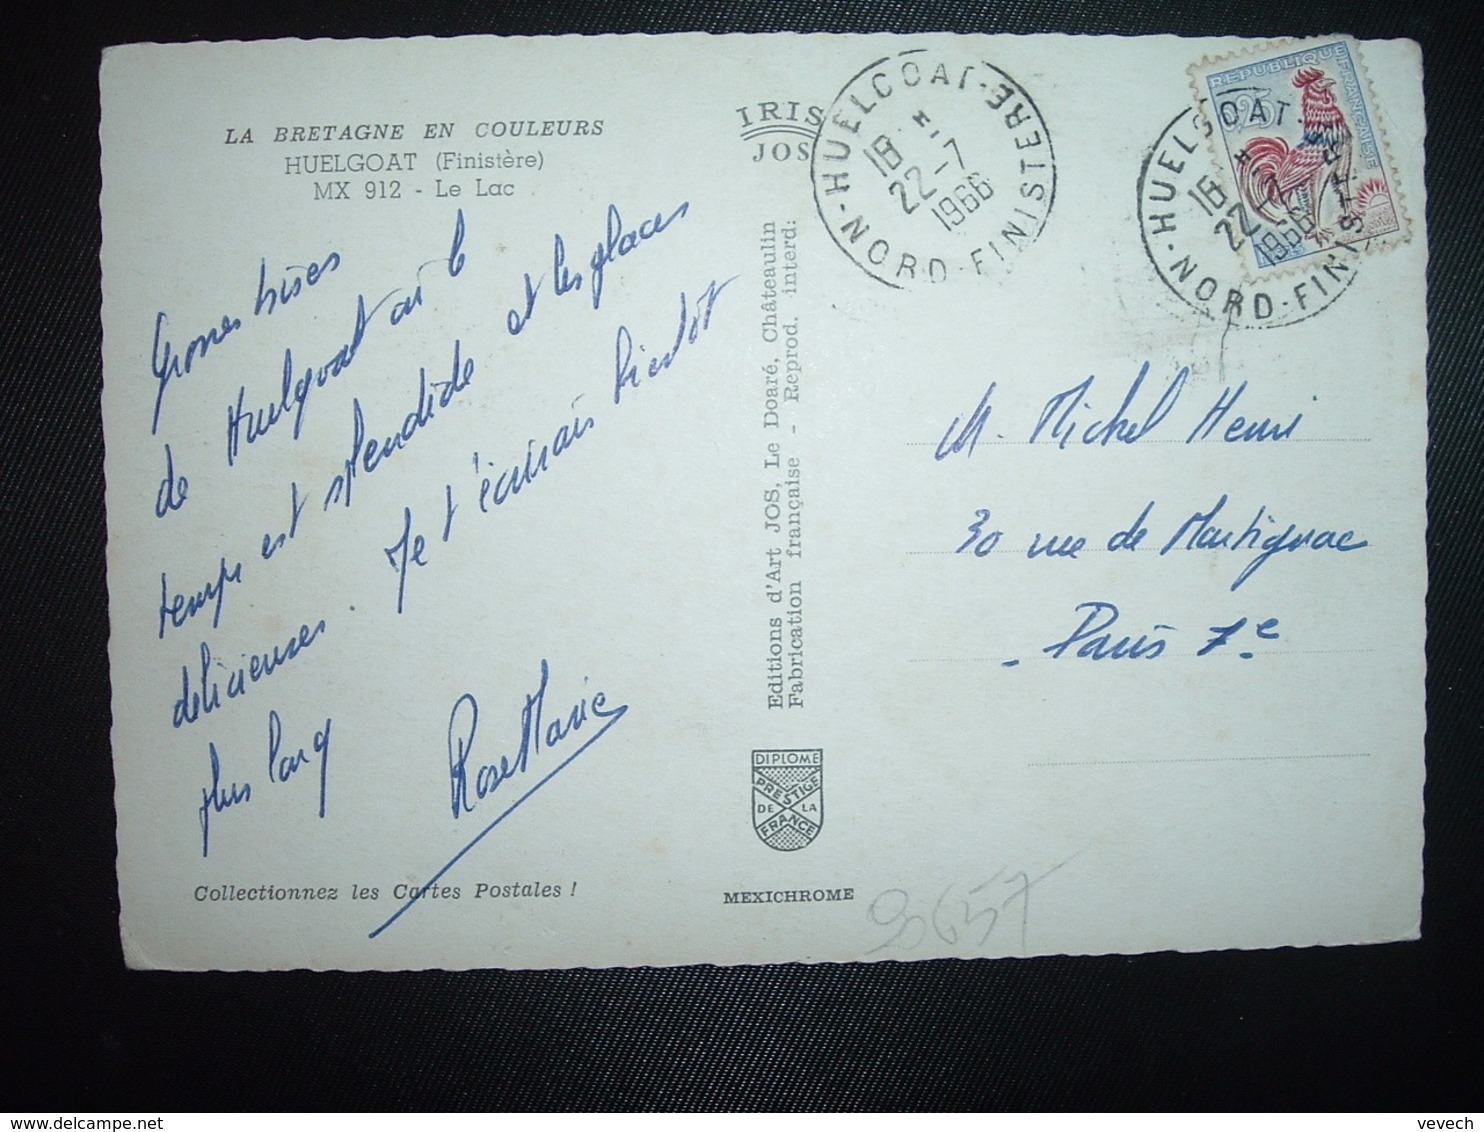 LA BRETAGNE EN COULEURS
HUELGOAT (Finistère)
MX 912 - Le Lac
Grosses bises
de Huelgoat où le
temps est splendide et les glaces
délicieuses. Je t'écrirais bientôt
plus long
Rose Marie
Collectionnez les Cartes Postales !
IRIS
JOS
Editions d'Art JOS, Le Doaré, Châteaulin
Fabrication française - Reprod. interd:
DIPLOME
PRESTIGE
DE LA
FRANCE
MEXICHROME
HUELGOAT
18 H
22-7
1966
NORD-FINISTERE
HUELGOAT
18 H
22-7
1966
NORD-FINISTERE
REPUBLIQUE FRANÇAISE
0,25
M. Michel Henri
30 rue de Martignac
Paris 7e
90657
vevech